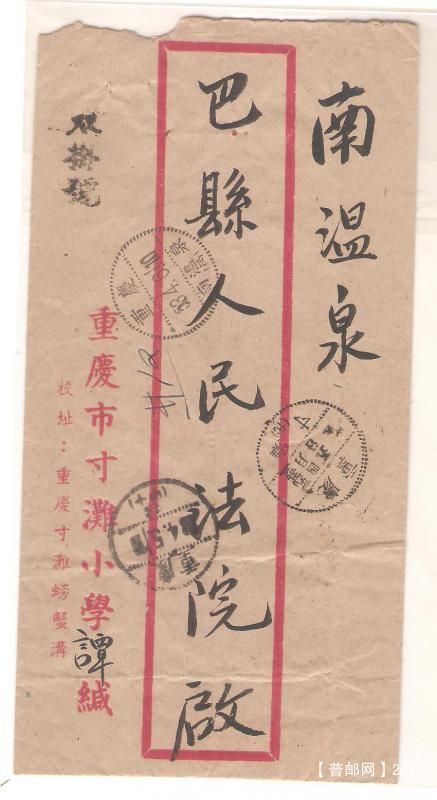 南温泉
巴縣人民法院啟
雙掛號
重慶市寸灘小學譚緘
校址：重慶寸灘螃蟹溝
重慶
【普邮网】